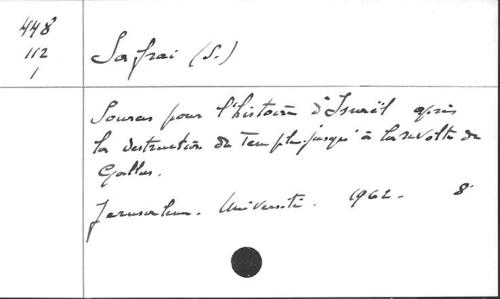 448
112
1
Safrai (S.)
Sources pour l'histoire d'Israël après
la destruction du Temple jusqu'à la révolte de
Gallus.
Jerusalem. Université. 1962. 8°